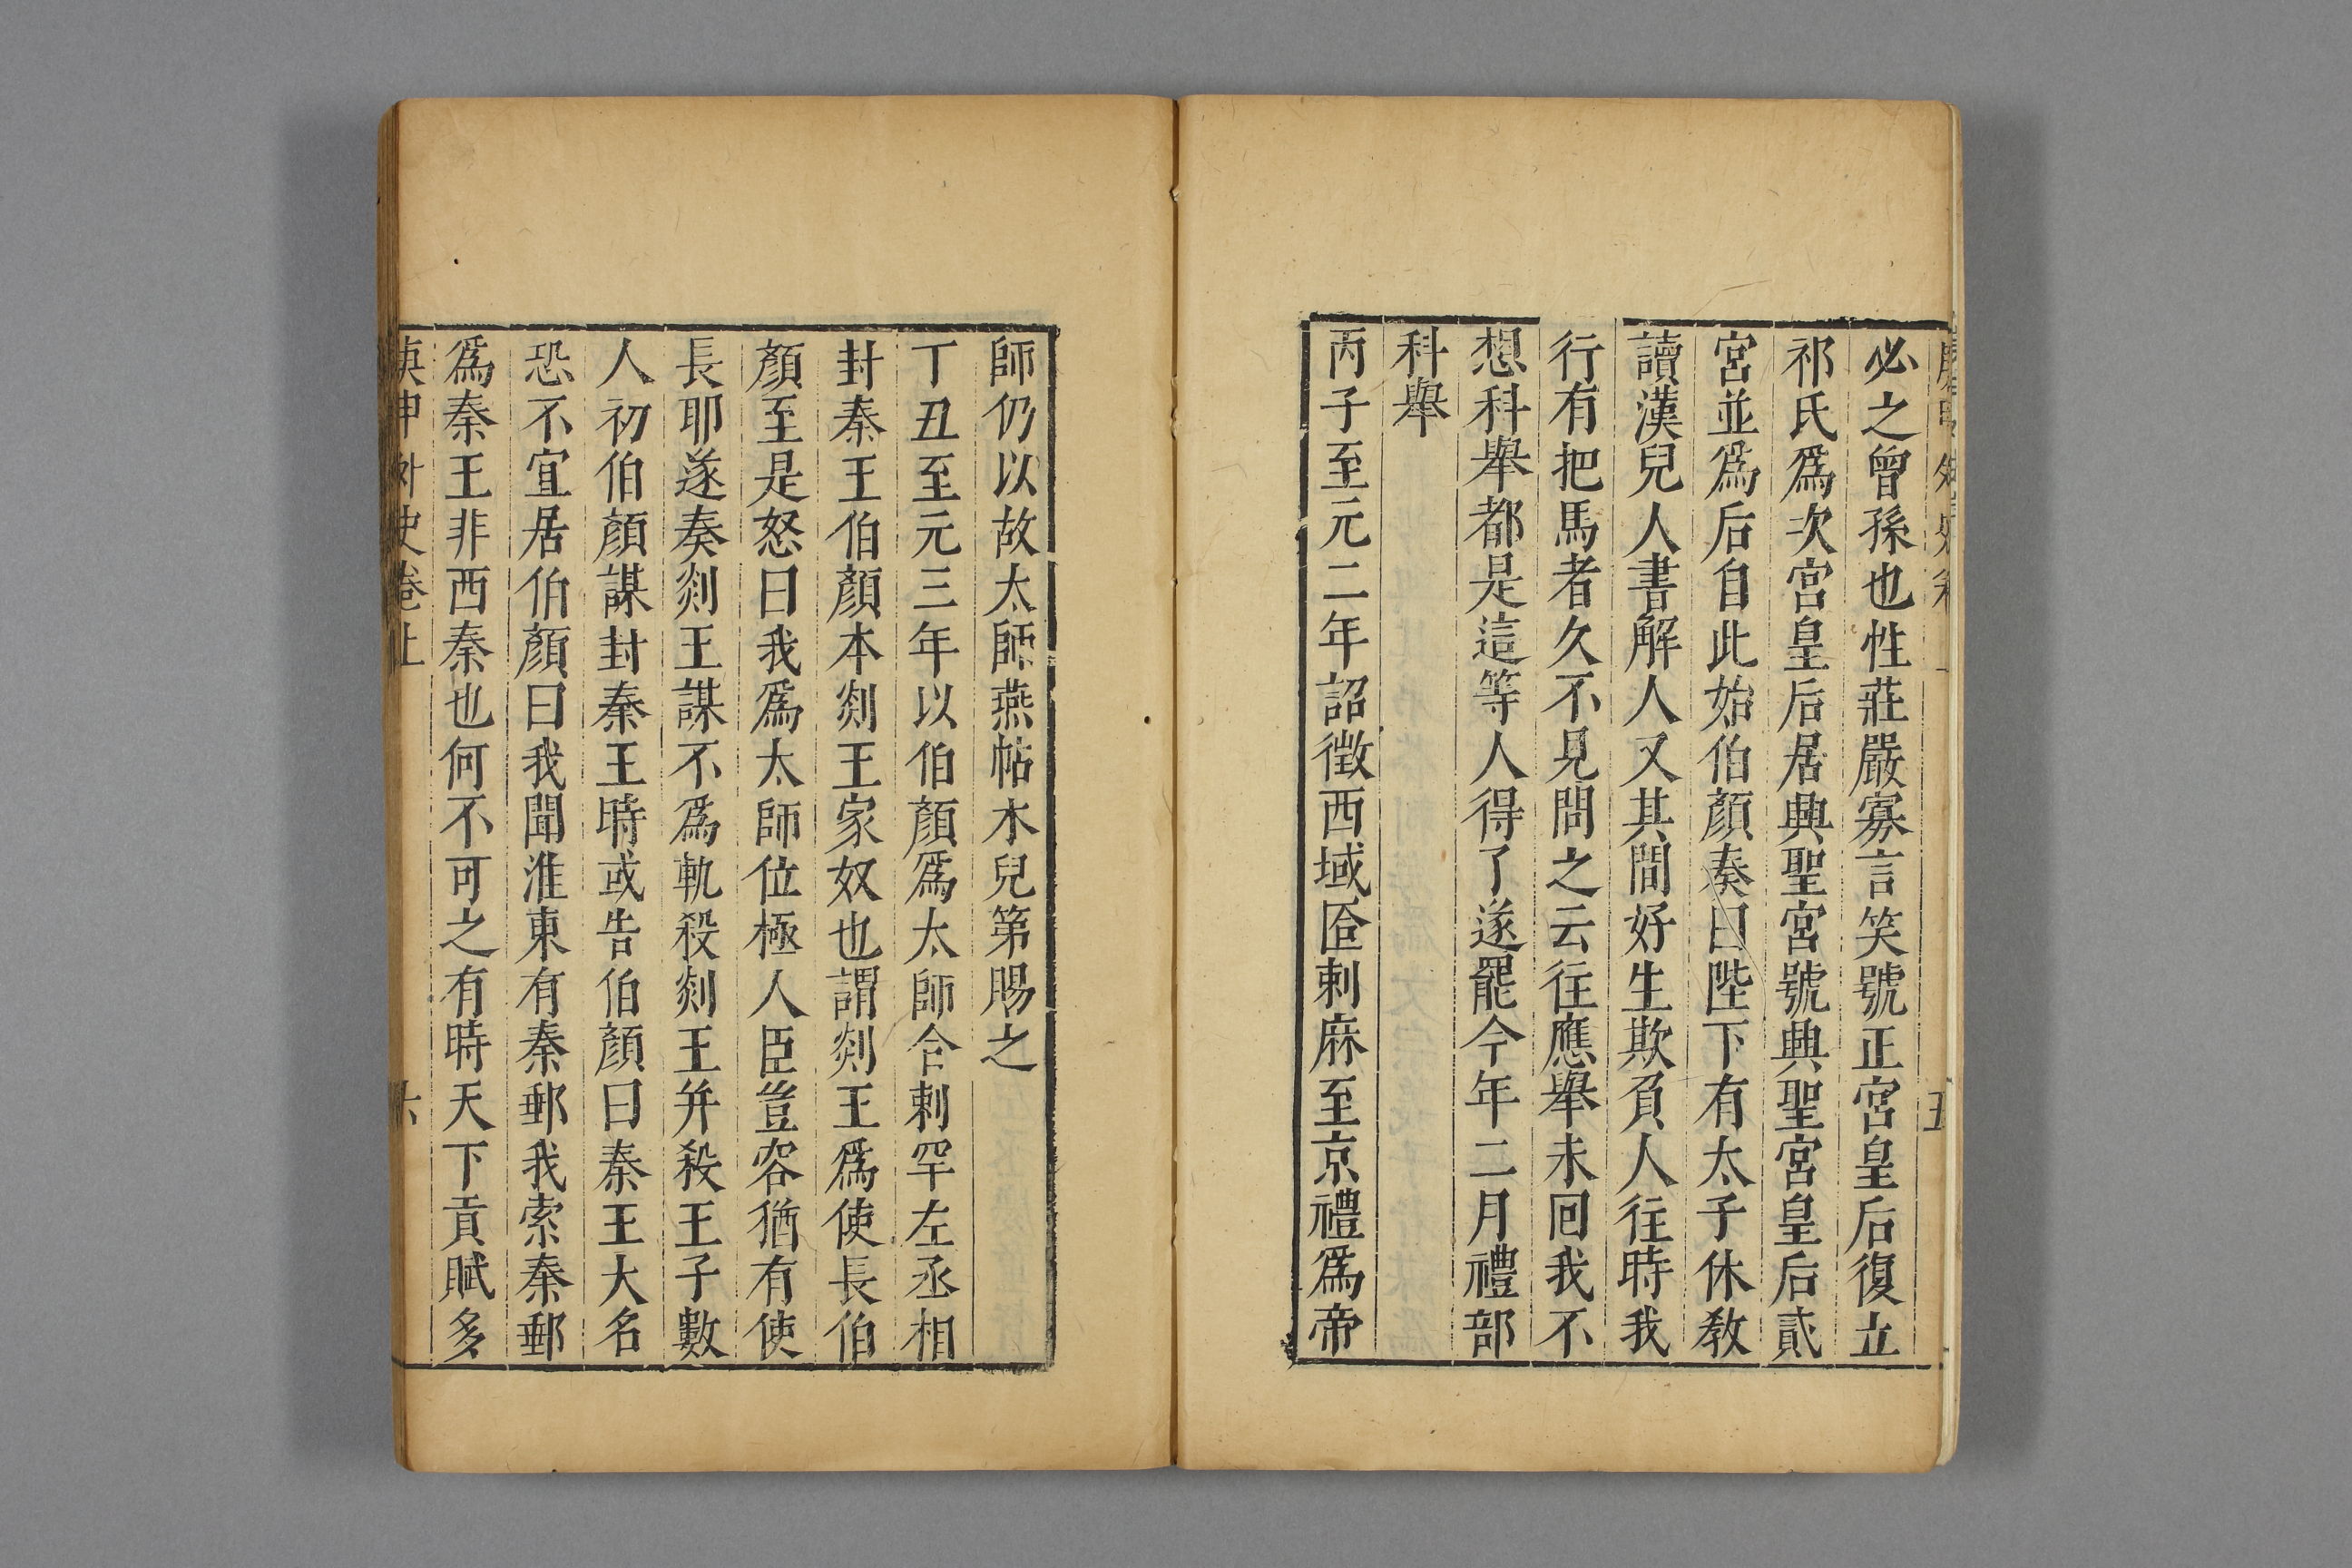 必之曾孫也性莊嚴寡言笑號正宮皇后復立
祁氏爲次宮皇后居興聖宮號興聖宮皇后貳
宮並爲后自此始伯顏奏曰陛下有太子休教
讀漢兒人書解人又其間好生欺負人往時我
行有把馬者久不見問之云往應舉未回我不
想科舉都是這等人得了遂罷今年二月禮部
科舉
丙子至元二年詔徵西域㕎剌麻至京禮爲帝
師仍以故太師燕帖木兒第賜之
丁丑至元三年以伯顏爲太師合剌罕左丞相
封秦王伯顏本剡王家奴也謂剡王爲使長伯
顏至是怒曰我爲太師位極人臣豈容猶有使
長耶遂奏剡王謀不爲軌殺剡王并殺王子數
人初伯顏謀封秦王時或告伯顏曰秦王大名
恐不宜居伯顏曰我聞淮東有秦郵我索秦郵
爲秦王非西秦也何不可之有時天下貢賦多
庚申外史卷上 六